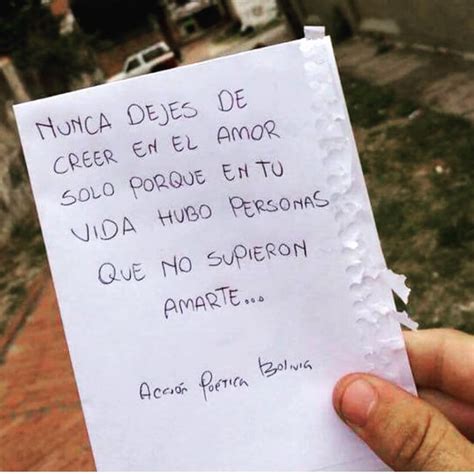 NUNCA DEJES DE
CREER EN EL AMOR
SOLO PORQUE EN TU
VIDA HUBO PERSONAS
QUE NO SUPIERON
AMARTE...
Acción Poética Bolivia